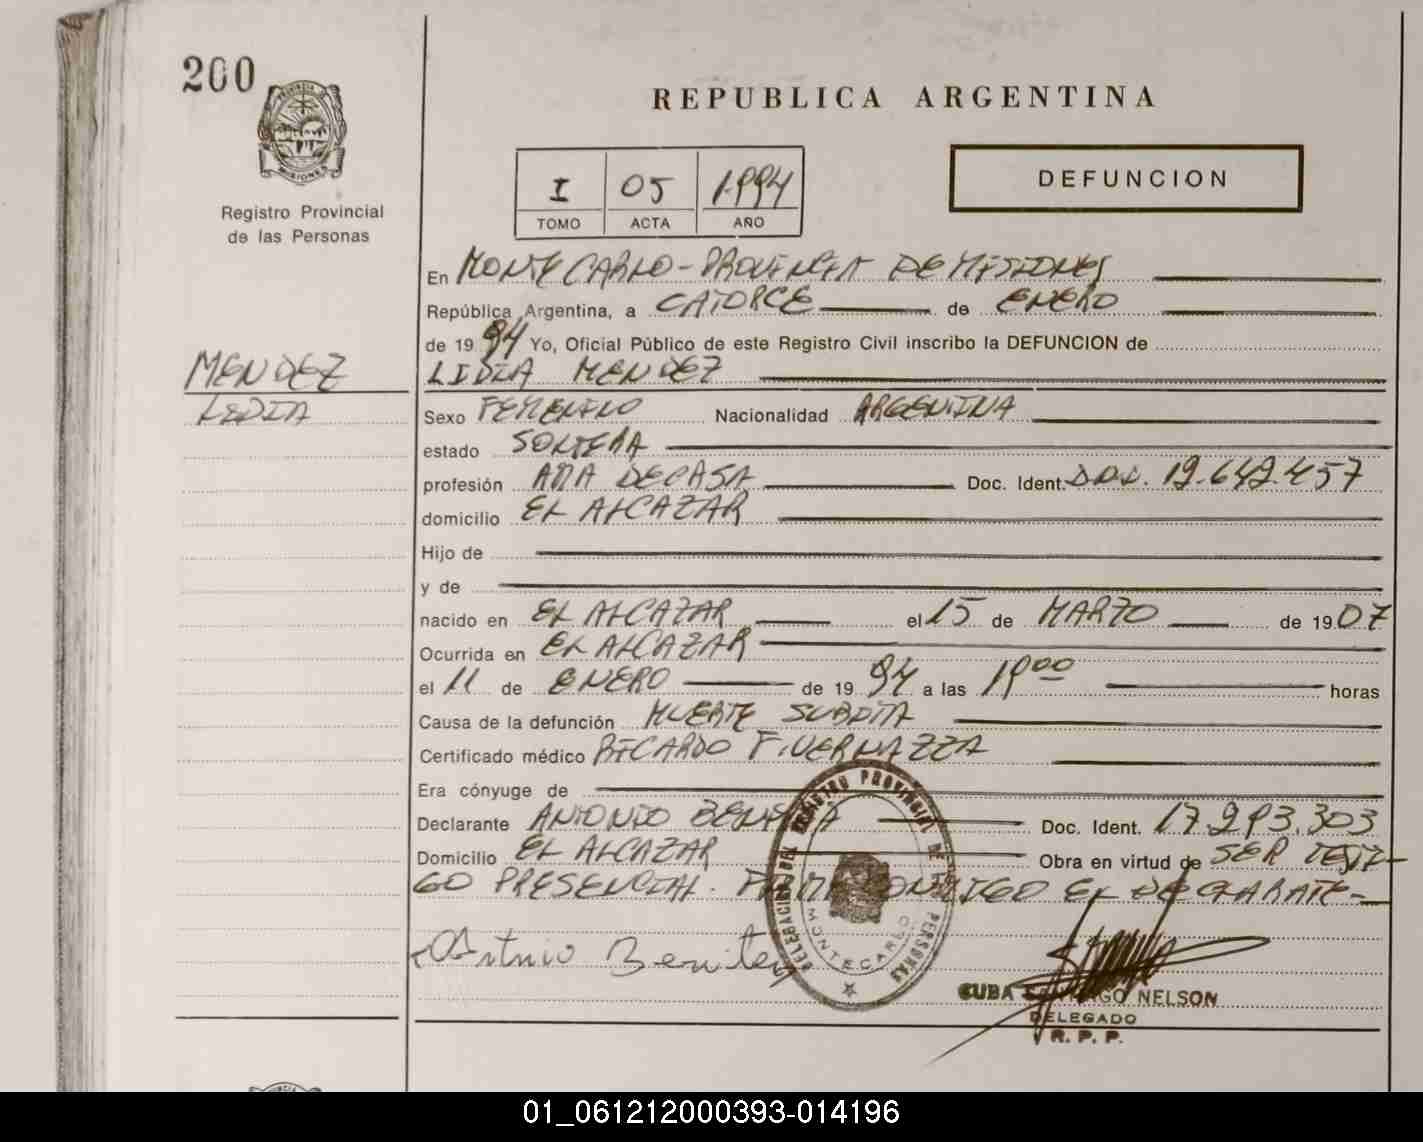 200
PROVINCIA DE
MISIONES
Registro Provincial
de las Personas
REPUBLICA ARGENTINA
I 05 1994
TOMO ACTA AÑO
DEFUNCION
En MONTECARLO - PROVINCIA DE MISIONES
República Argentina, a CATORCE de ENERO
de 19 94 Yo, Oficial Público de este Registro Civil inscribo la DEFUNCION de
MENDEZ
LIDIA MENDEZ
LIDIA
Sexo FEMENINO Nacionalidad ARGENTINA
estado SOLTERA
profesión AMA DE CASA Doc. Ident. 12.642.457
domicilio EL ALCAZAR
Hijo de
y de
nacido en EL ALCAZAR el 15 de MARZO de 19 07
Ocurrida en EL ALCAZAR
el 11 de ENERO de 19 94 a las 19 00 horas
Causa de la defunción MUERTE SUBITA
Certificado médico RICARDO F. VERNAZZA
Era cónyuge de
Declarante ANTONIO Doc. Ident. 17.293.303
Domicilio EL ALCAZAR Obra en virtud de SER TESTI-
GO PRESENCIAL. FIRMA CONMIGO EL DECLARATE-
Antonio Benitez
DELEGACION DEL REGISTRO PROVINCIAL DE PERSONAS
MONTECARLO
CUBA SANTIAGO NELSON
DELEGADO
R. P. P.
01_061212000393-014196